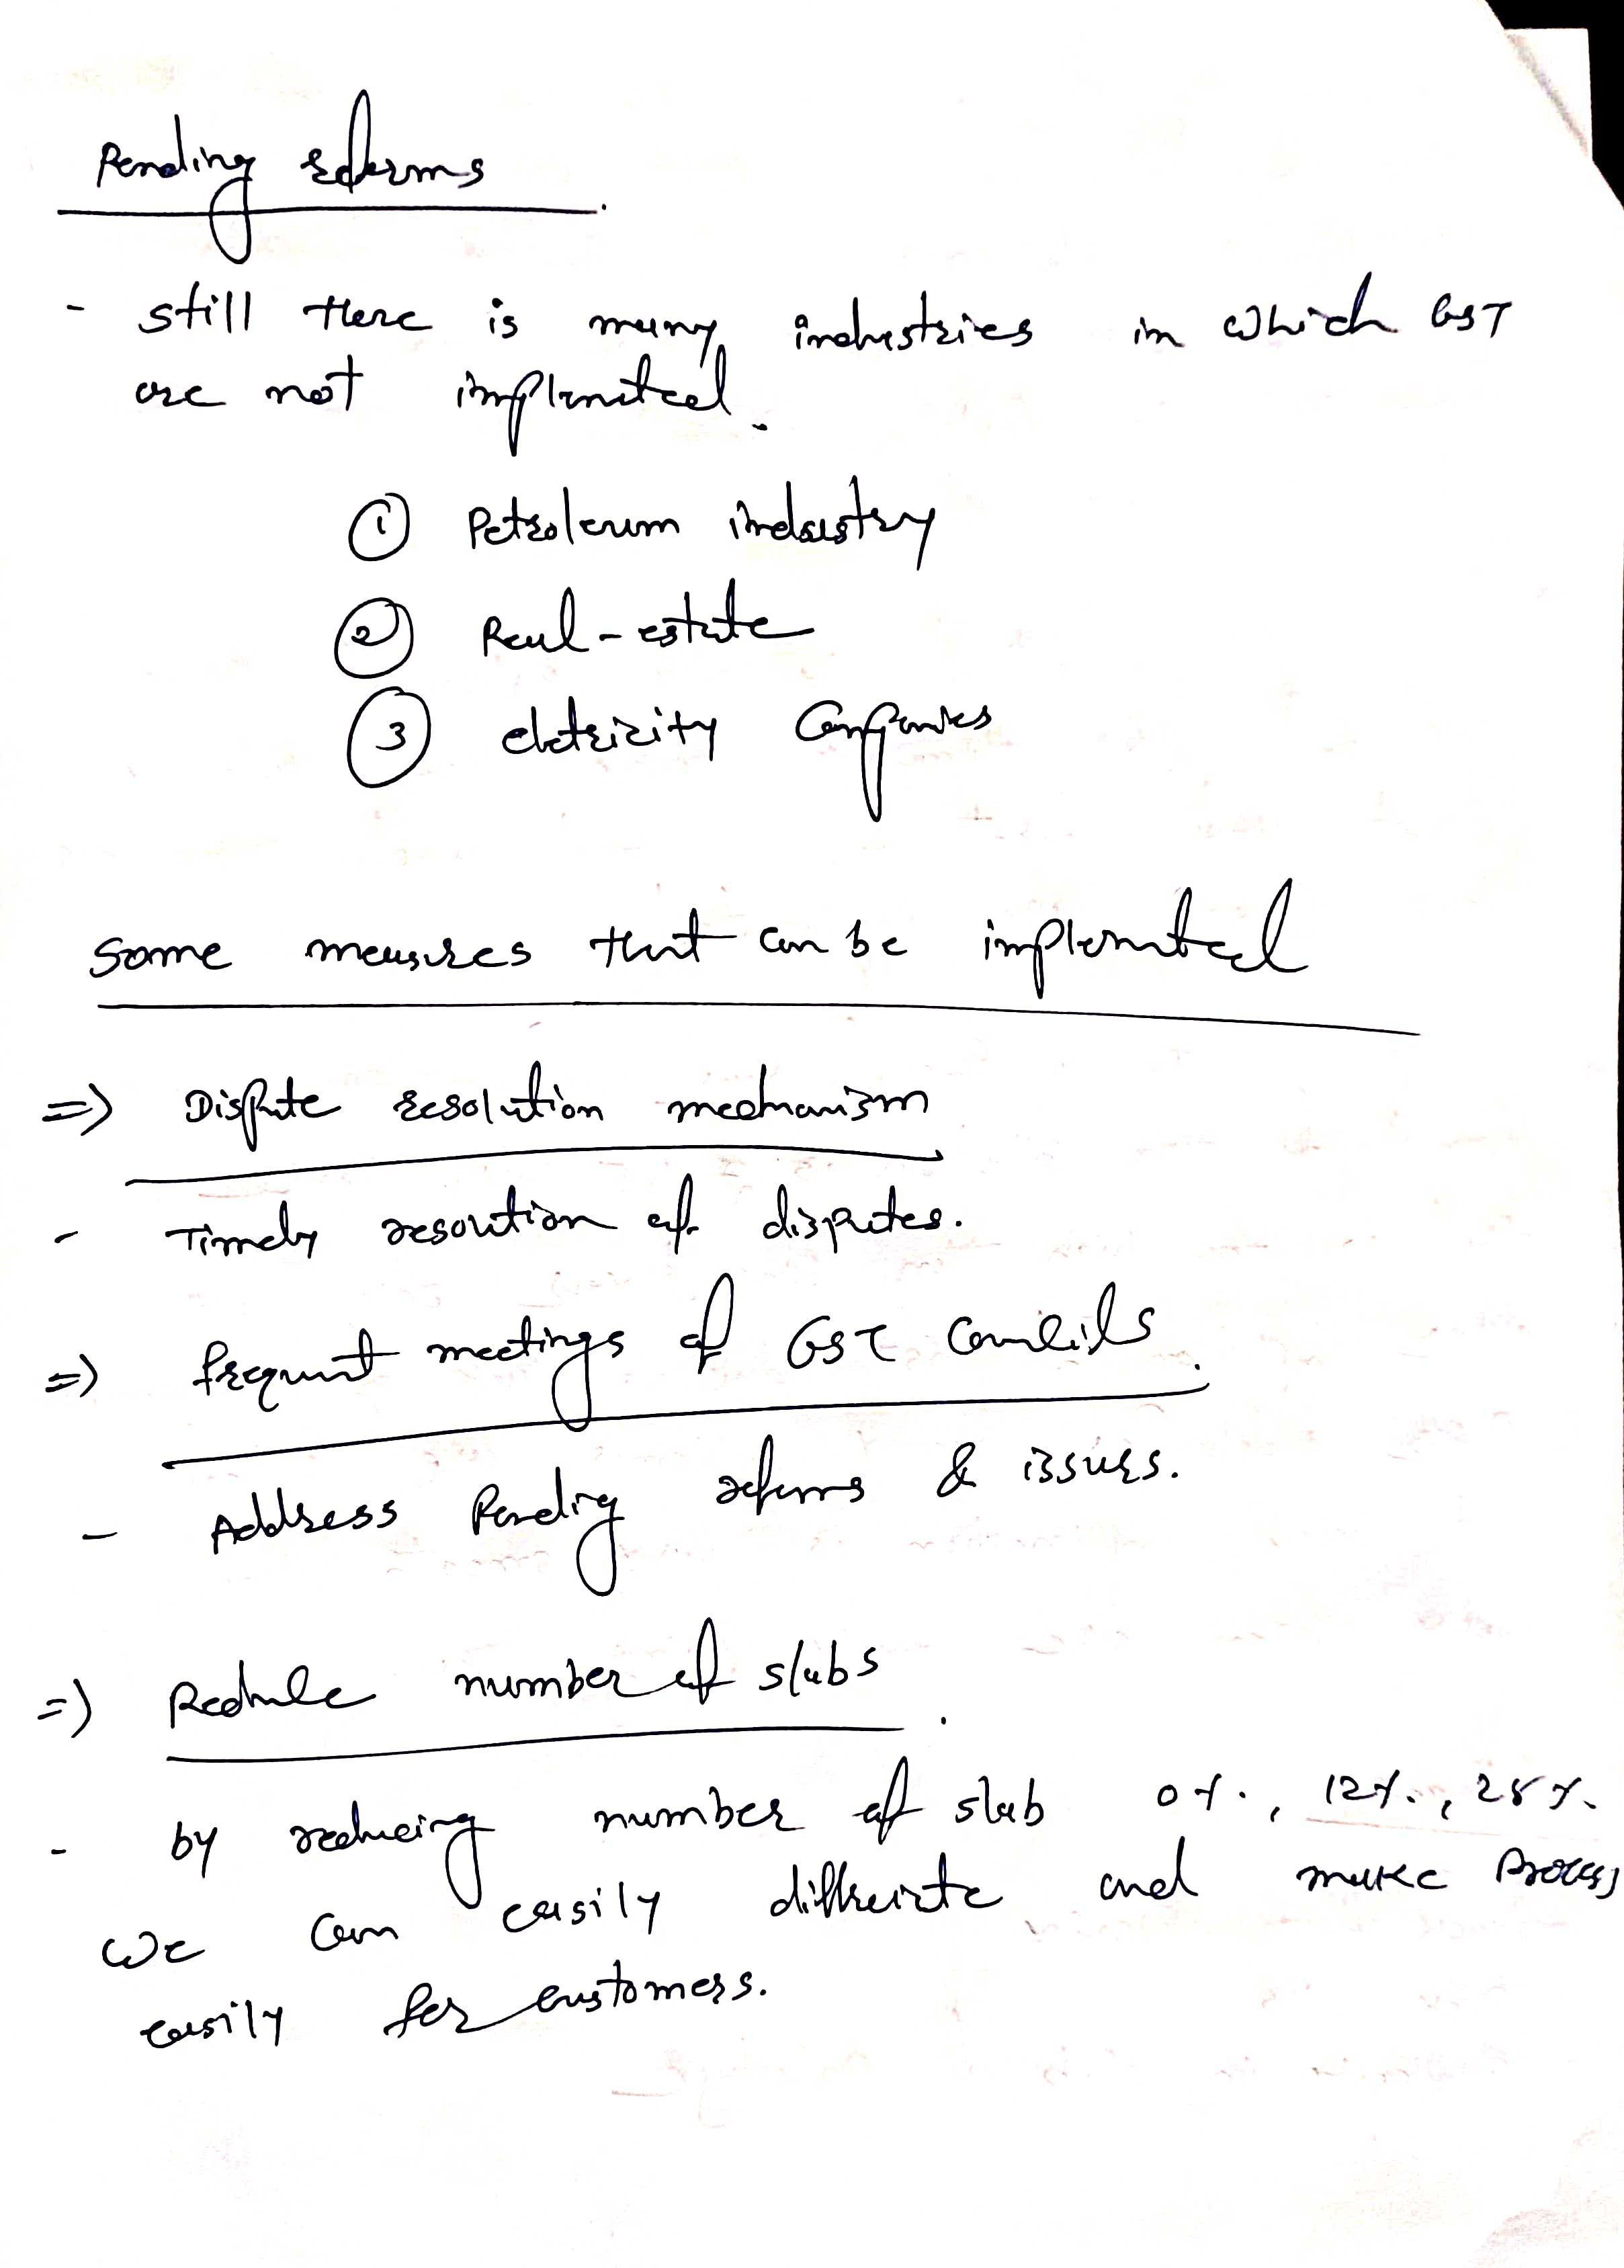 Pending reforms
- still there is many industries in which GST
are not implemented.
① Petroleum industry
② Real-estate
③ eletricity Companies
Some measures that can be implemented
=> Dispute resolution mechanism
- Timely resoution of disputes.
=> frequent meetings of GST Councils.
- Address Pending reforms & issues.
=> Reduce number of slabs.
- by reducing number of slab 0%, 12%, 28%.
we can easily differente and make Process
easily for customers.